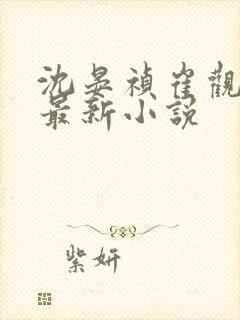 沈晏禎崔觀
最新小說
紫妍